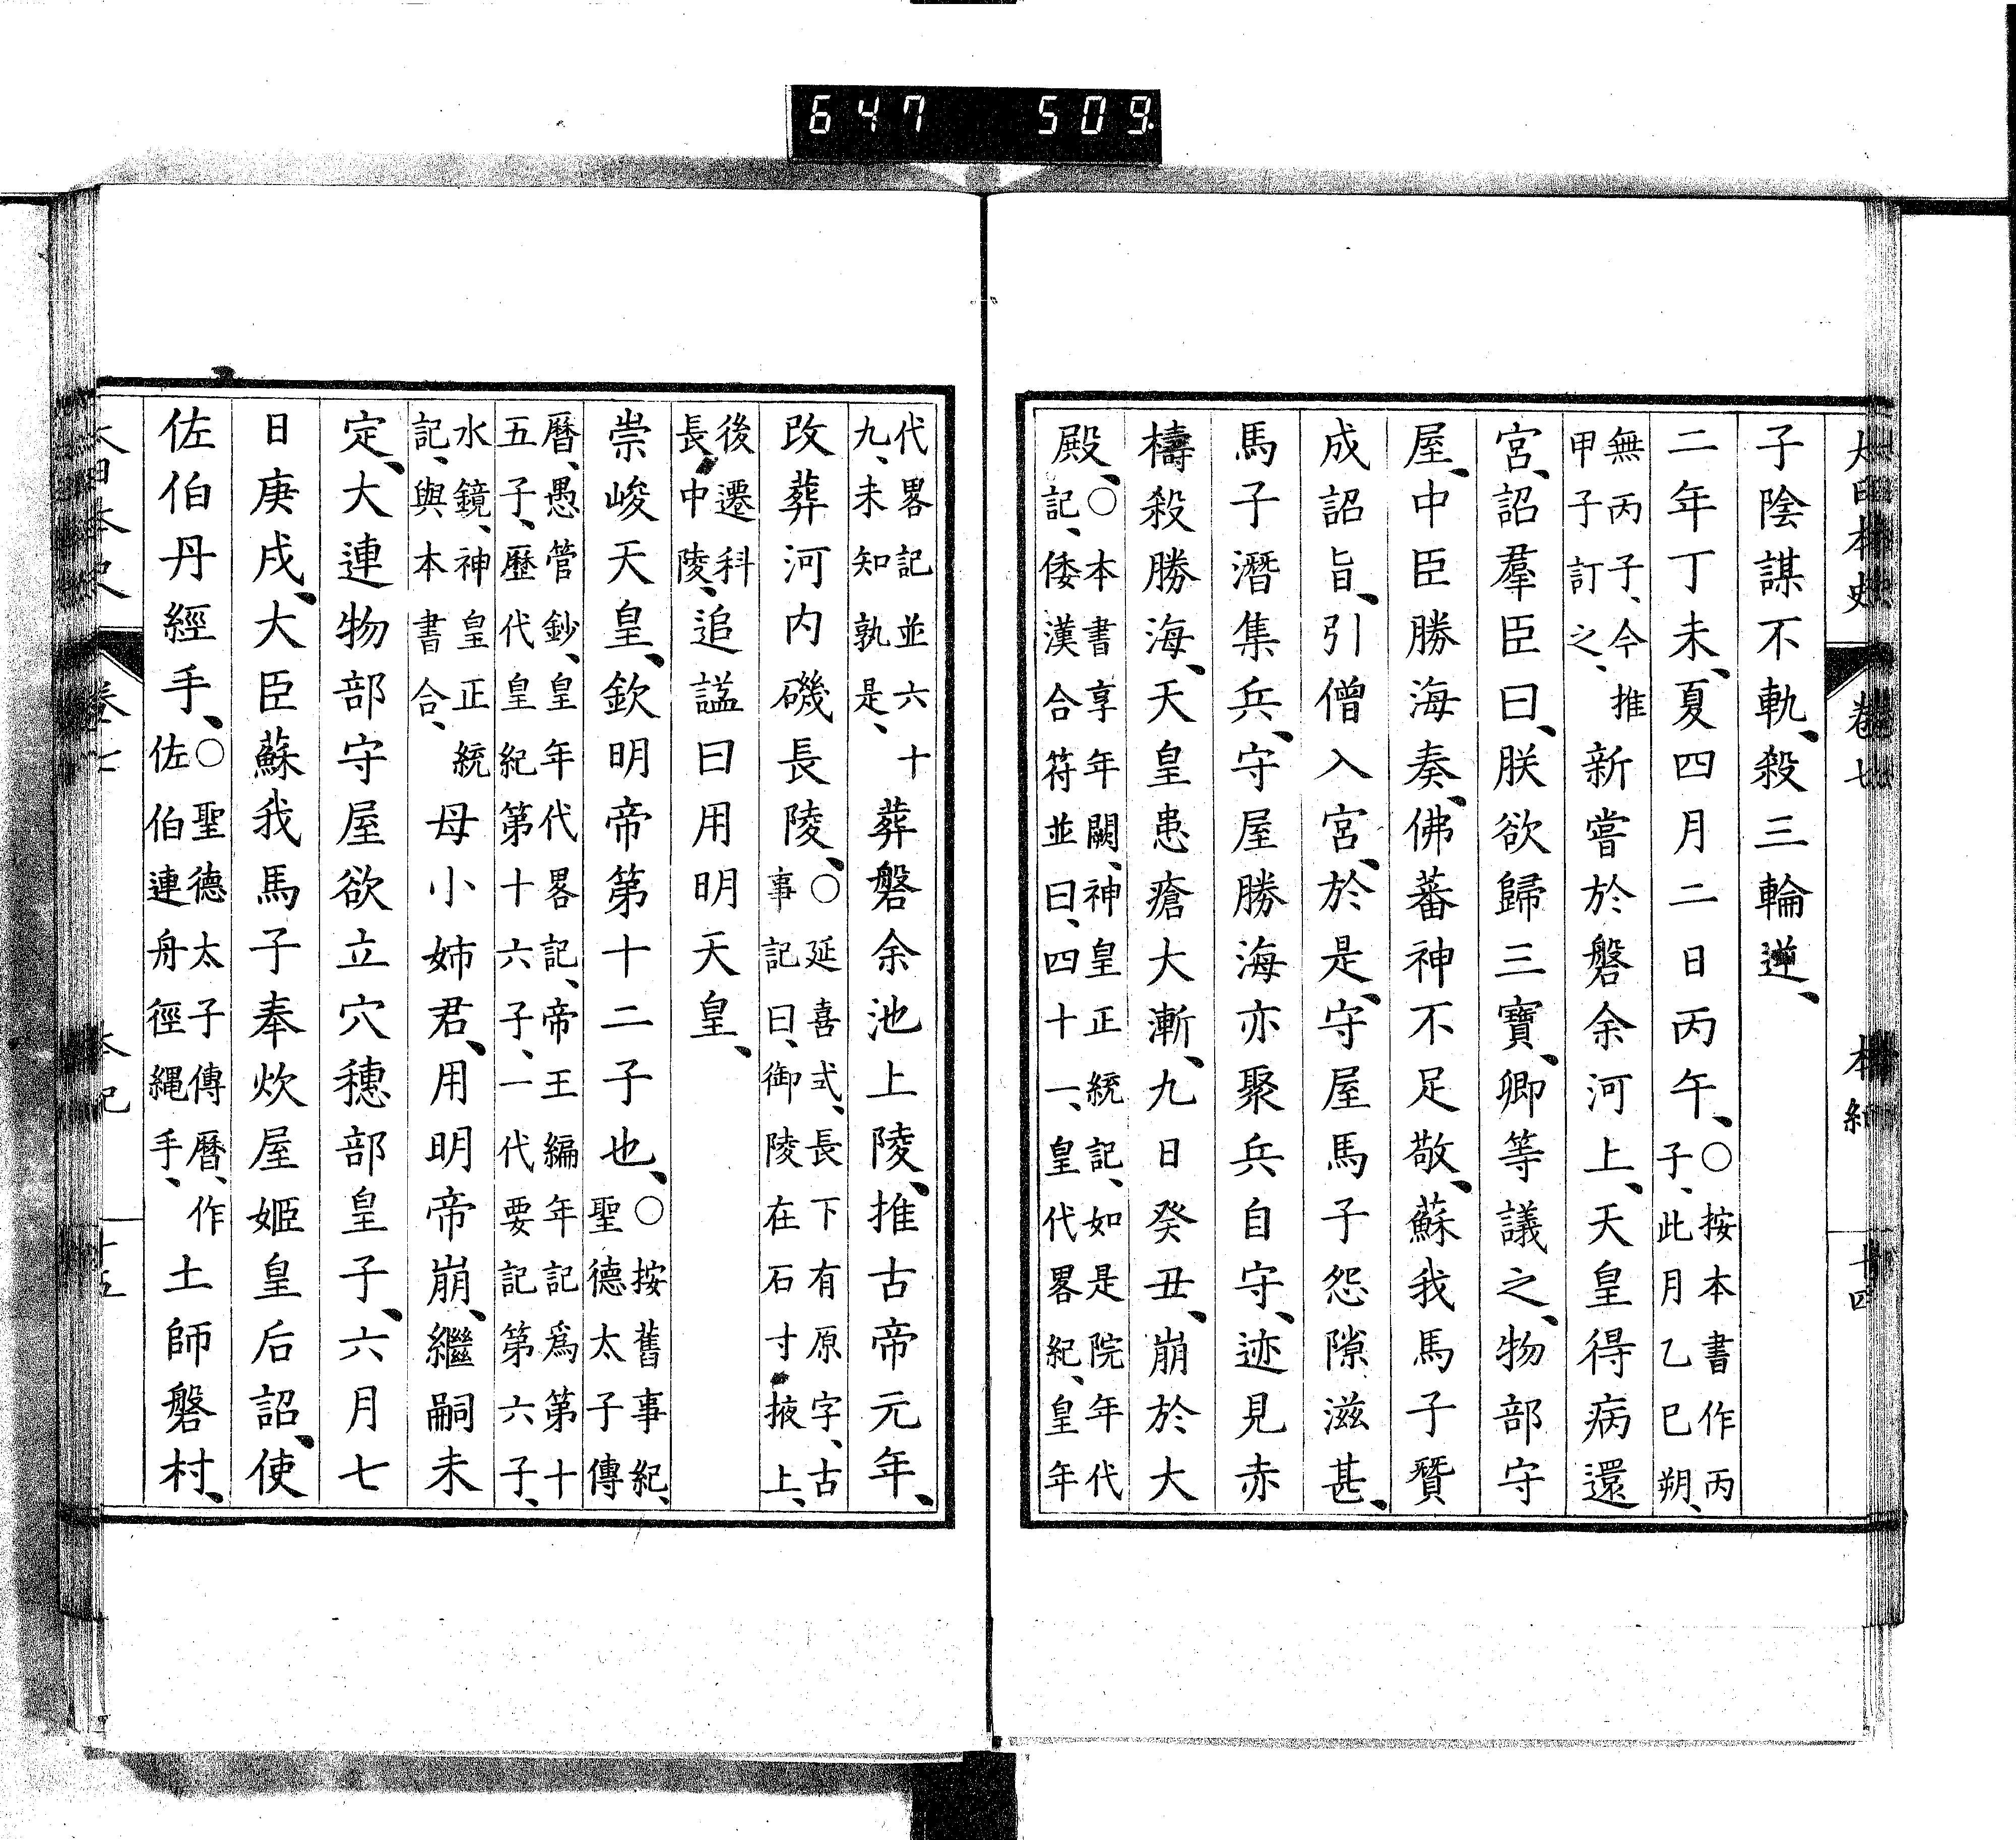 647 509.
大日本史 卷七 本紀 十四
子陰謀不軌、殺三輪逆、
二年丁未、夏四月二日丙午、○按本書作丙子、此月乙巳朔、
無丙子、今推甲子訂之、新嘗於磐余河上、天皇得病還
宮、詔羣臣曰、朕欲歸三寶、卿等議之、物部守
屋、中臣勝海奏、佛蕃神不足敬、蘇我馬子贊
成詔旨、引僧入宮、於是、守屋馬子怨隙滋甚、
馬子潛集兵、守屋勝海亦聚兵自守、迹見赤
檮殺勝海、天皇患瘡大漸、九日癸丑、崩於大
殿、○本書享年闕、神皇正統記、如是院年代記、倭漢合符並曰、四十一、皇代畧紀、皇年
代畧記並六十九、未知孰是、葬磐余池上陵、推古帝元年、
改葬河内磯長陵、○延喜式、長下有原字、古事記曰、御陵在石寸掖上、
後遷科長中陵、追謚曰用明天皇、
崇峻天皇、欽明帝第十二子也、○按舊事紀、聖德太子傳
曆、愚管鈔、皇年代畧記、帝王編年記爲第十五子、歷代皇紀第十六子、一代要記第六子、
水鏡、神皇正統記、與本書合、母小姉君、用明帝崩、繼嗣未
定、大連物部守屋欲立穴穗部皇子、六月七
日庚戌、大臣蘇我馬子奉炊屋姬皇后詔、使
佐伯丹經手、○聖德太子傳曆、作佐伯連舟徑繩手、土師磐村、
大日本史 卷七 本紀 十五